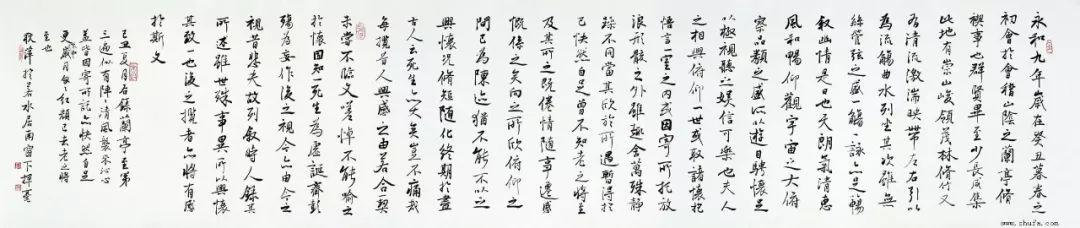 永和九年歲在癸丑暮春之
初會於會稽山陰之蘭亭脩
禊事也群賢畢至少長咸集
此地有崇山峻領茂林脩竹又
有清流激湍映帶左右引以
為流觴曲水列坐其次雖無
絲竹管弦之盛一觴一詠亦足以暢
叙幽情是日也天朗氣清惠
風和暢仰觀宇宙之大俯
察品類之盛所以遊目騁懷足
以極視聽之娱信可樂也夫人
之相與俯仰一世或取諸懷抱
悟言一室之内或因寄所托放
浪形骸之外雖趣舍萬殊静
躁不同當其欣於所遇暫得於
己怏然自足曾不知老之將至
及其所之既倦情随事遷感
慨係之矣向之所欣俯仰之
間已為陳迹猶不能不以之
興懷况脩短随化終期於盡
古人云死生亦大矣豈不痛哉
每攬昔人興感之由若合一契
未嘗不臨文嗟悼不能喻之
於懷固知死生為虚誕齊彭
殤為妄作後之視今亦由今之
視昔悲夫故列叙時人錄其
所述雖世殊事異所以興懷
其致一也後之攬者亦將有感
於斯文
己丑夏月右錄蘭亭至第
三遍似有陣陣清風襲來沁心
蓋皆因寄所託亦怏然自足
更感紅顏已去老之將
至也
萍於若水居雨窗下揮毫
www.zhufa.com